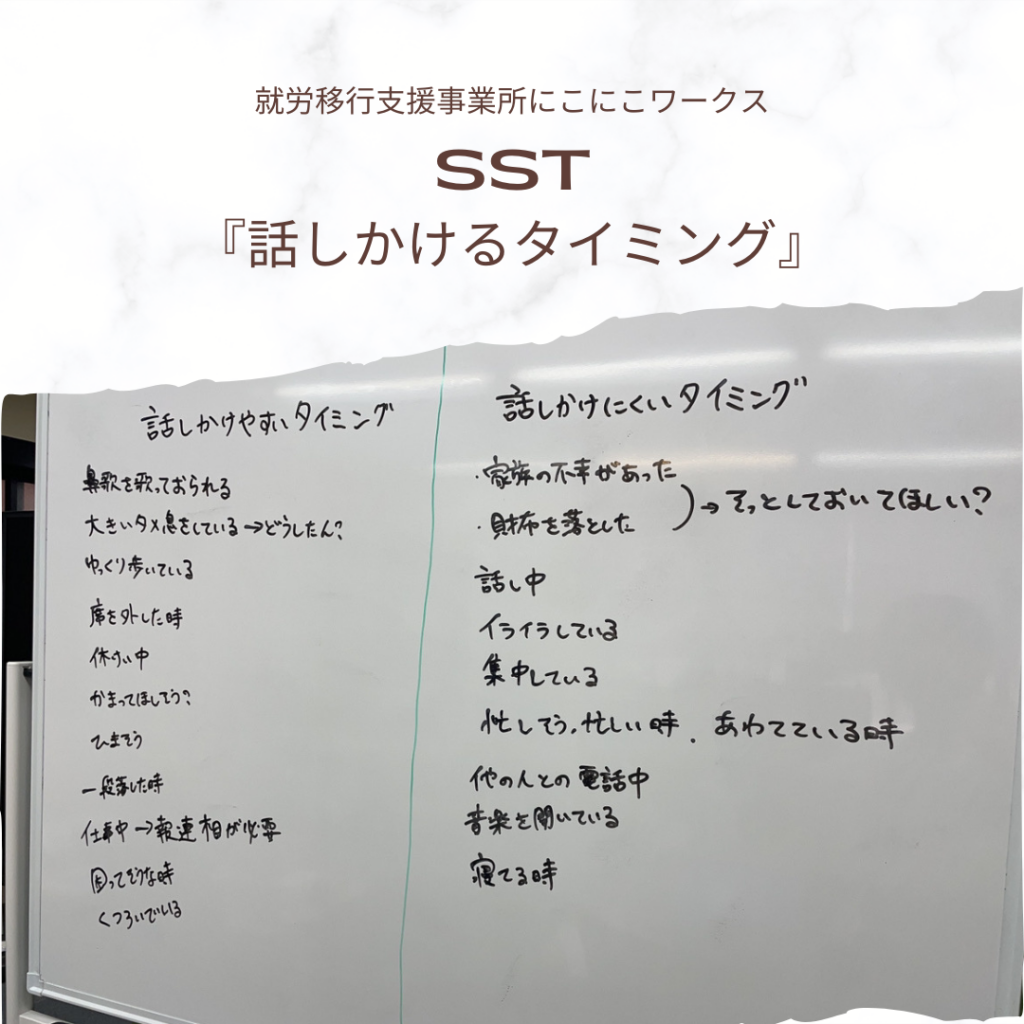 就労移行支援事業所にこにこワークス
SST
『話しかけるタイミング』
話しかけやすいタイミング
鼻歌を歌っておられる
大きいタメ息をしている→どうしたん?
ゆっくり歩いている
席を外した時
休けい中
かまってほしそう?
ひまそう
一段落した時
仕事中→報連相が必要
困ってそうな時
くつろいでいる
話しかけにくいタイミング
・家族の不幸があった
・財布を落とした
→そっとしておいてほしい?
話し中
イライラしている
集中している
忙しそう、忙しい時、あわてている時
他の人との電話中
音楽を聞いている
寝てる時